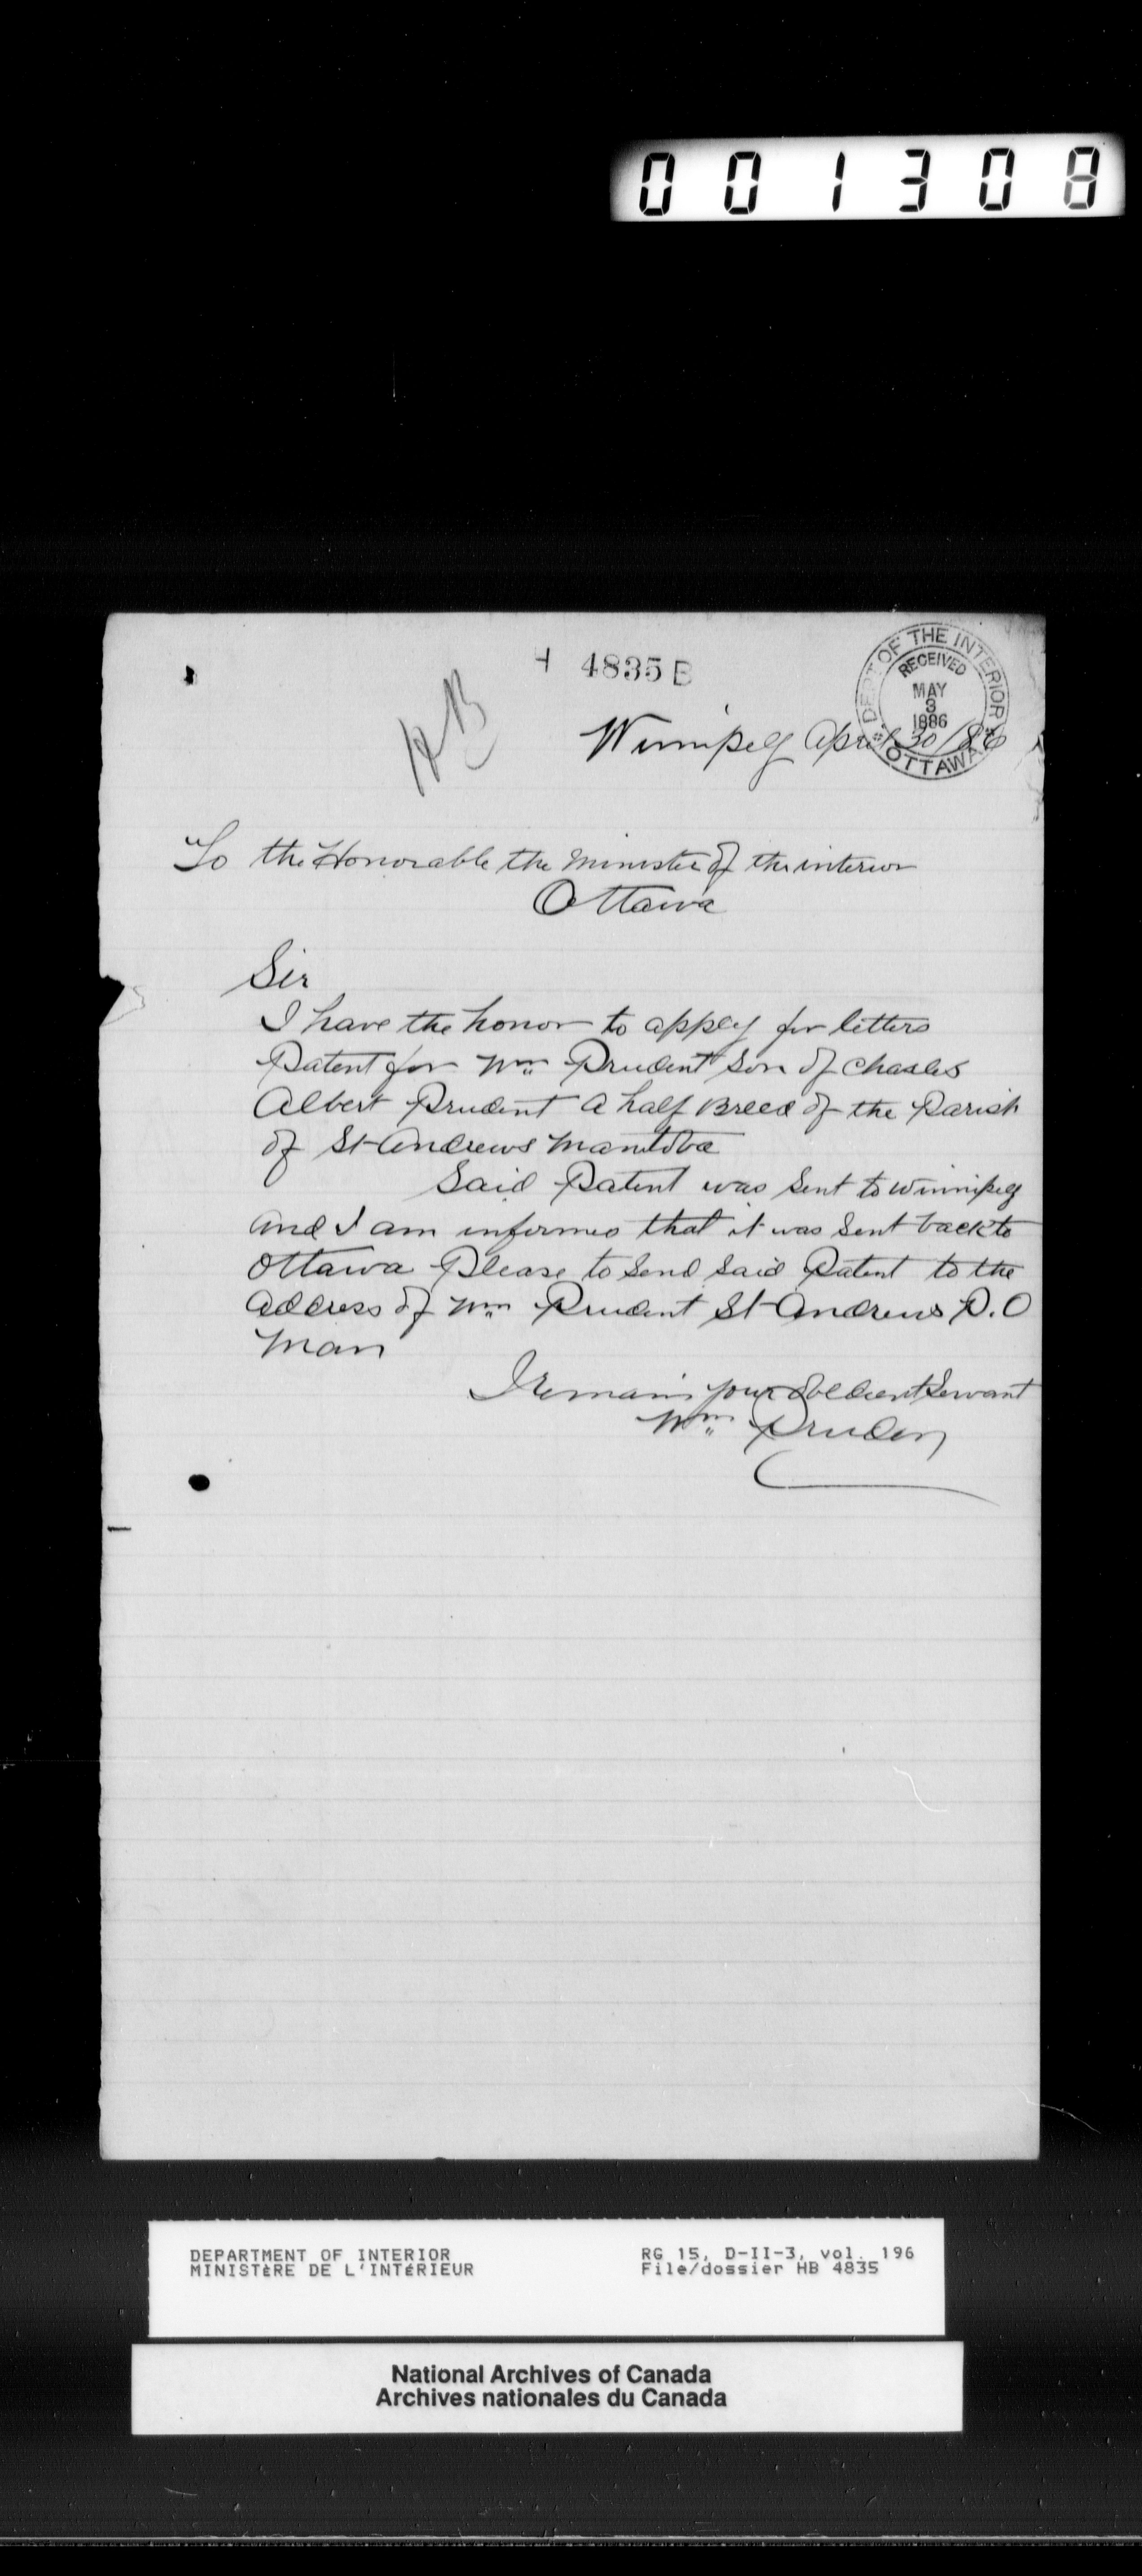 001308
H 4835 B
HB
DEPT OF THE INTERIOR
RECEIVED
MAY
3
1886
OTTAWA
Winnipeg April 30/86
To the Honorable the Minister of the interior
Ottawa
Sir
I have the honor to apply for letters
Patent for Wm Prudent Son of Charles
Albert Prudent a half Breed of the Parish
of St Andrews Manitoba
Said Patent was Sent to Winnipeg
and I am informed that it was Sent back to
Ottawa Please to Send Said Patent to the
address of Wm Prudent St Andrews P.O
Man
I remain your Obedient Servant
Wm Pruden
DEPARTMENT OF INTERIOR
MINISTÈRE DE L'INTÉRIEUR
RG 15, D-II-3, vol. 196
File/dossier HB 4835
National Archives of Canada
Archives nationales du Canada